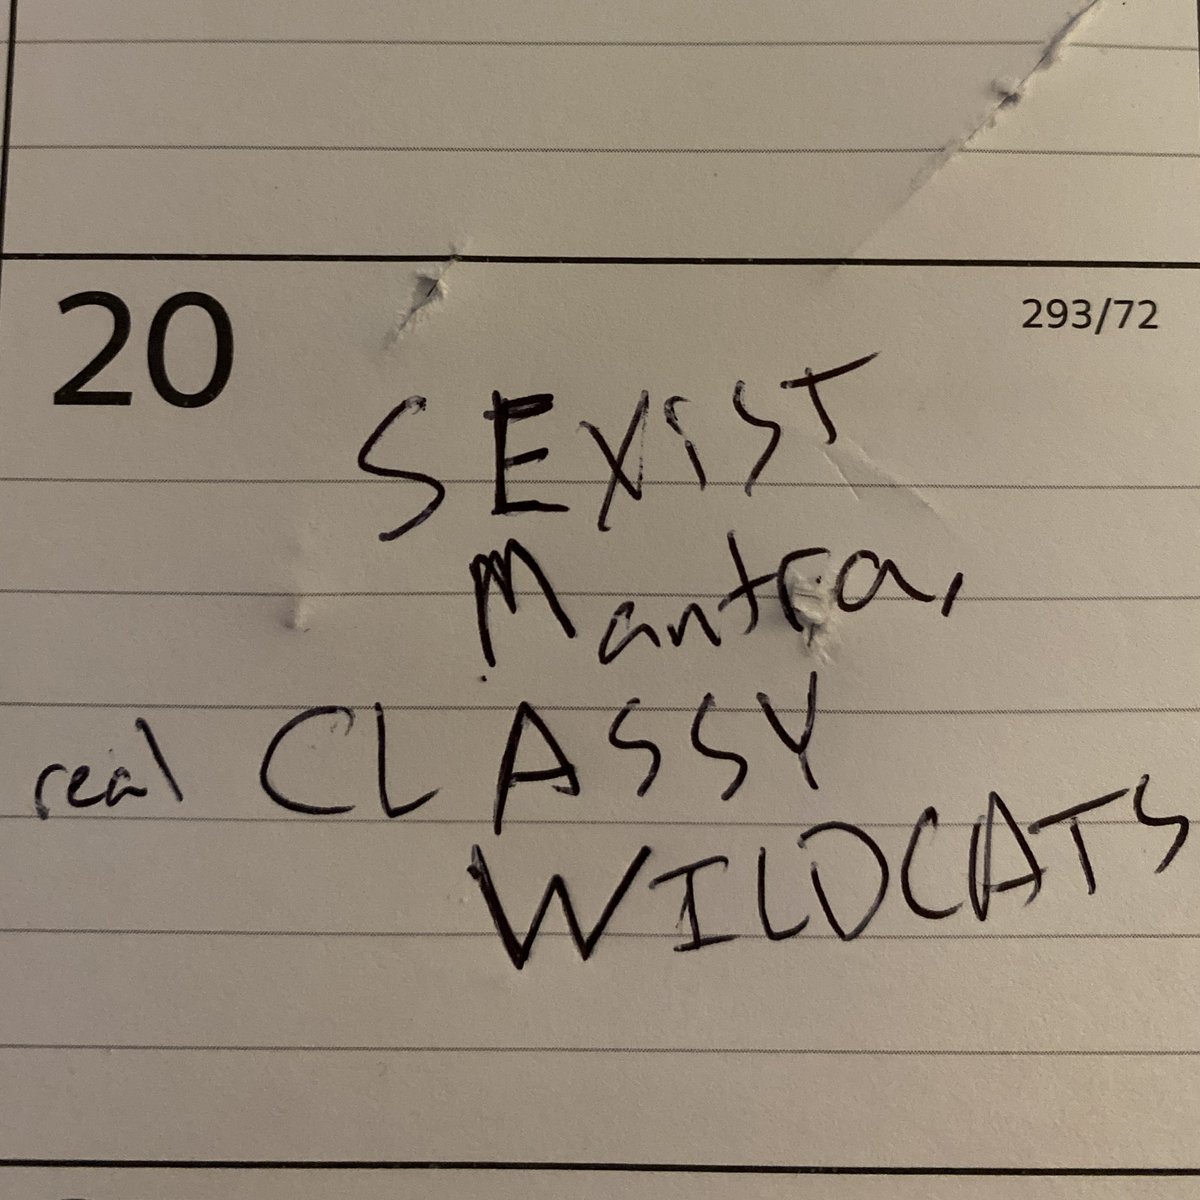 20 293/72
SEXiST
Mantra,
real CLASSY
WILDCATS